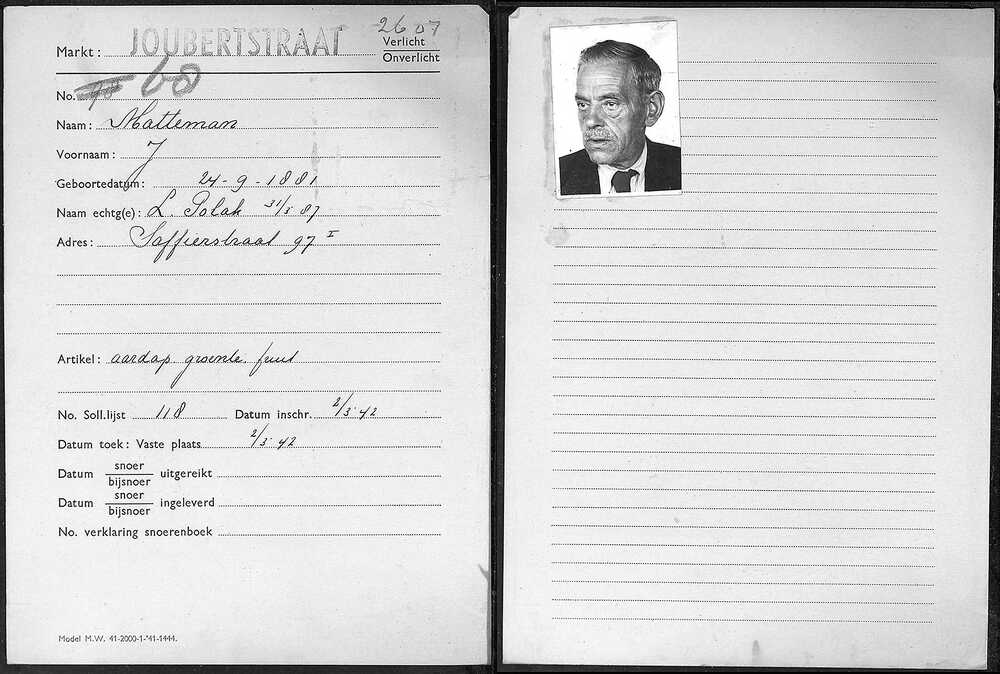 2607
Markt: JOUBERTSTRAAT Verlicht
Onverlicht
No. 68
Naam: Matteman
Voornaam: J
Geboortedatum: 24-9-1881
Naam echtg(e): L. Polak 31/5 87
Adres: Saffierstraat 97 I
Artikel: aardap. groente. fruit
No. Soll.lijst 118 Datum inschr. 2/3 42
Datum toek: Vaste plaats 2/3 42
Datum snoer uitgereikt
bijsnoer
Datum snoer ingeleverd
bijsnoer
No. verklaring snoerenboek
Model M.W. 41-2000-1-'41-1444.